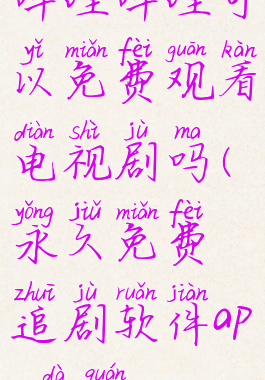 哔哩哔哩可
yǐ miǎn fèi guān kàn
以免费观看
diàn shì jù ma
电视剧吗(
yǒng jiǔ miǎn fèi
永久免费
zhuī jù ruǎn jiàn
追剧软件ap
dà quán